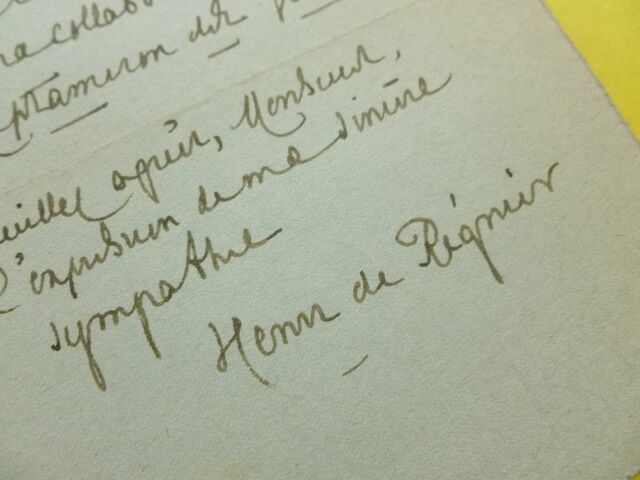 ma collabo
ptameron des
euillez agréer, Monsieur,
l'expression de ma sincère
sympathie
Henri de Régnier